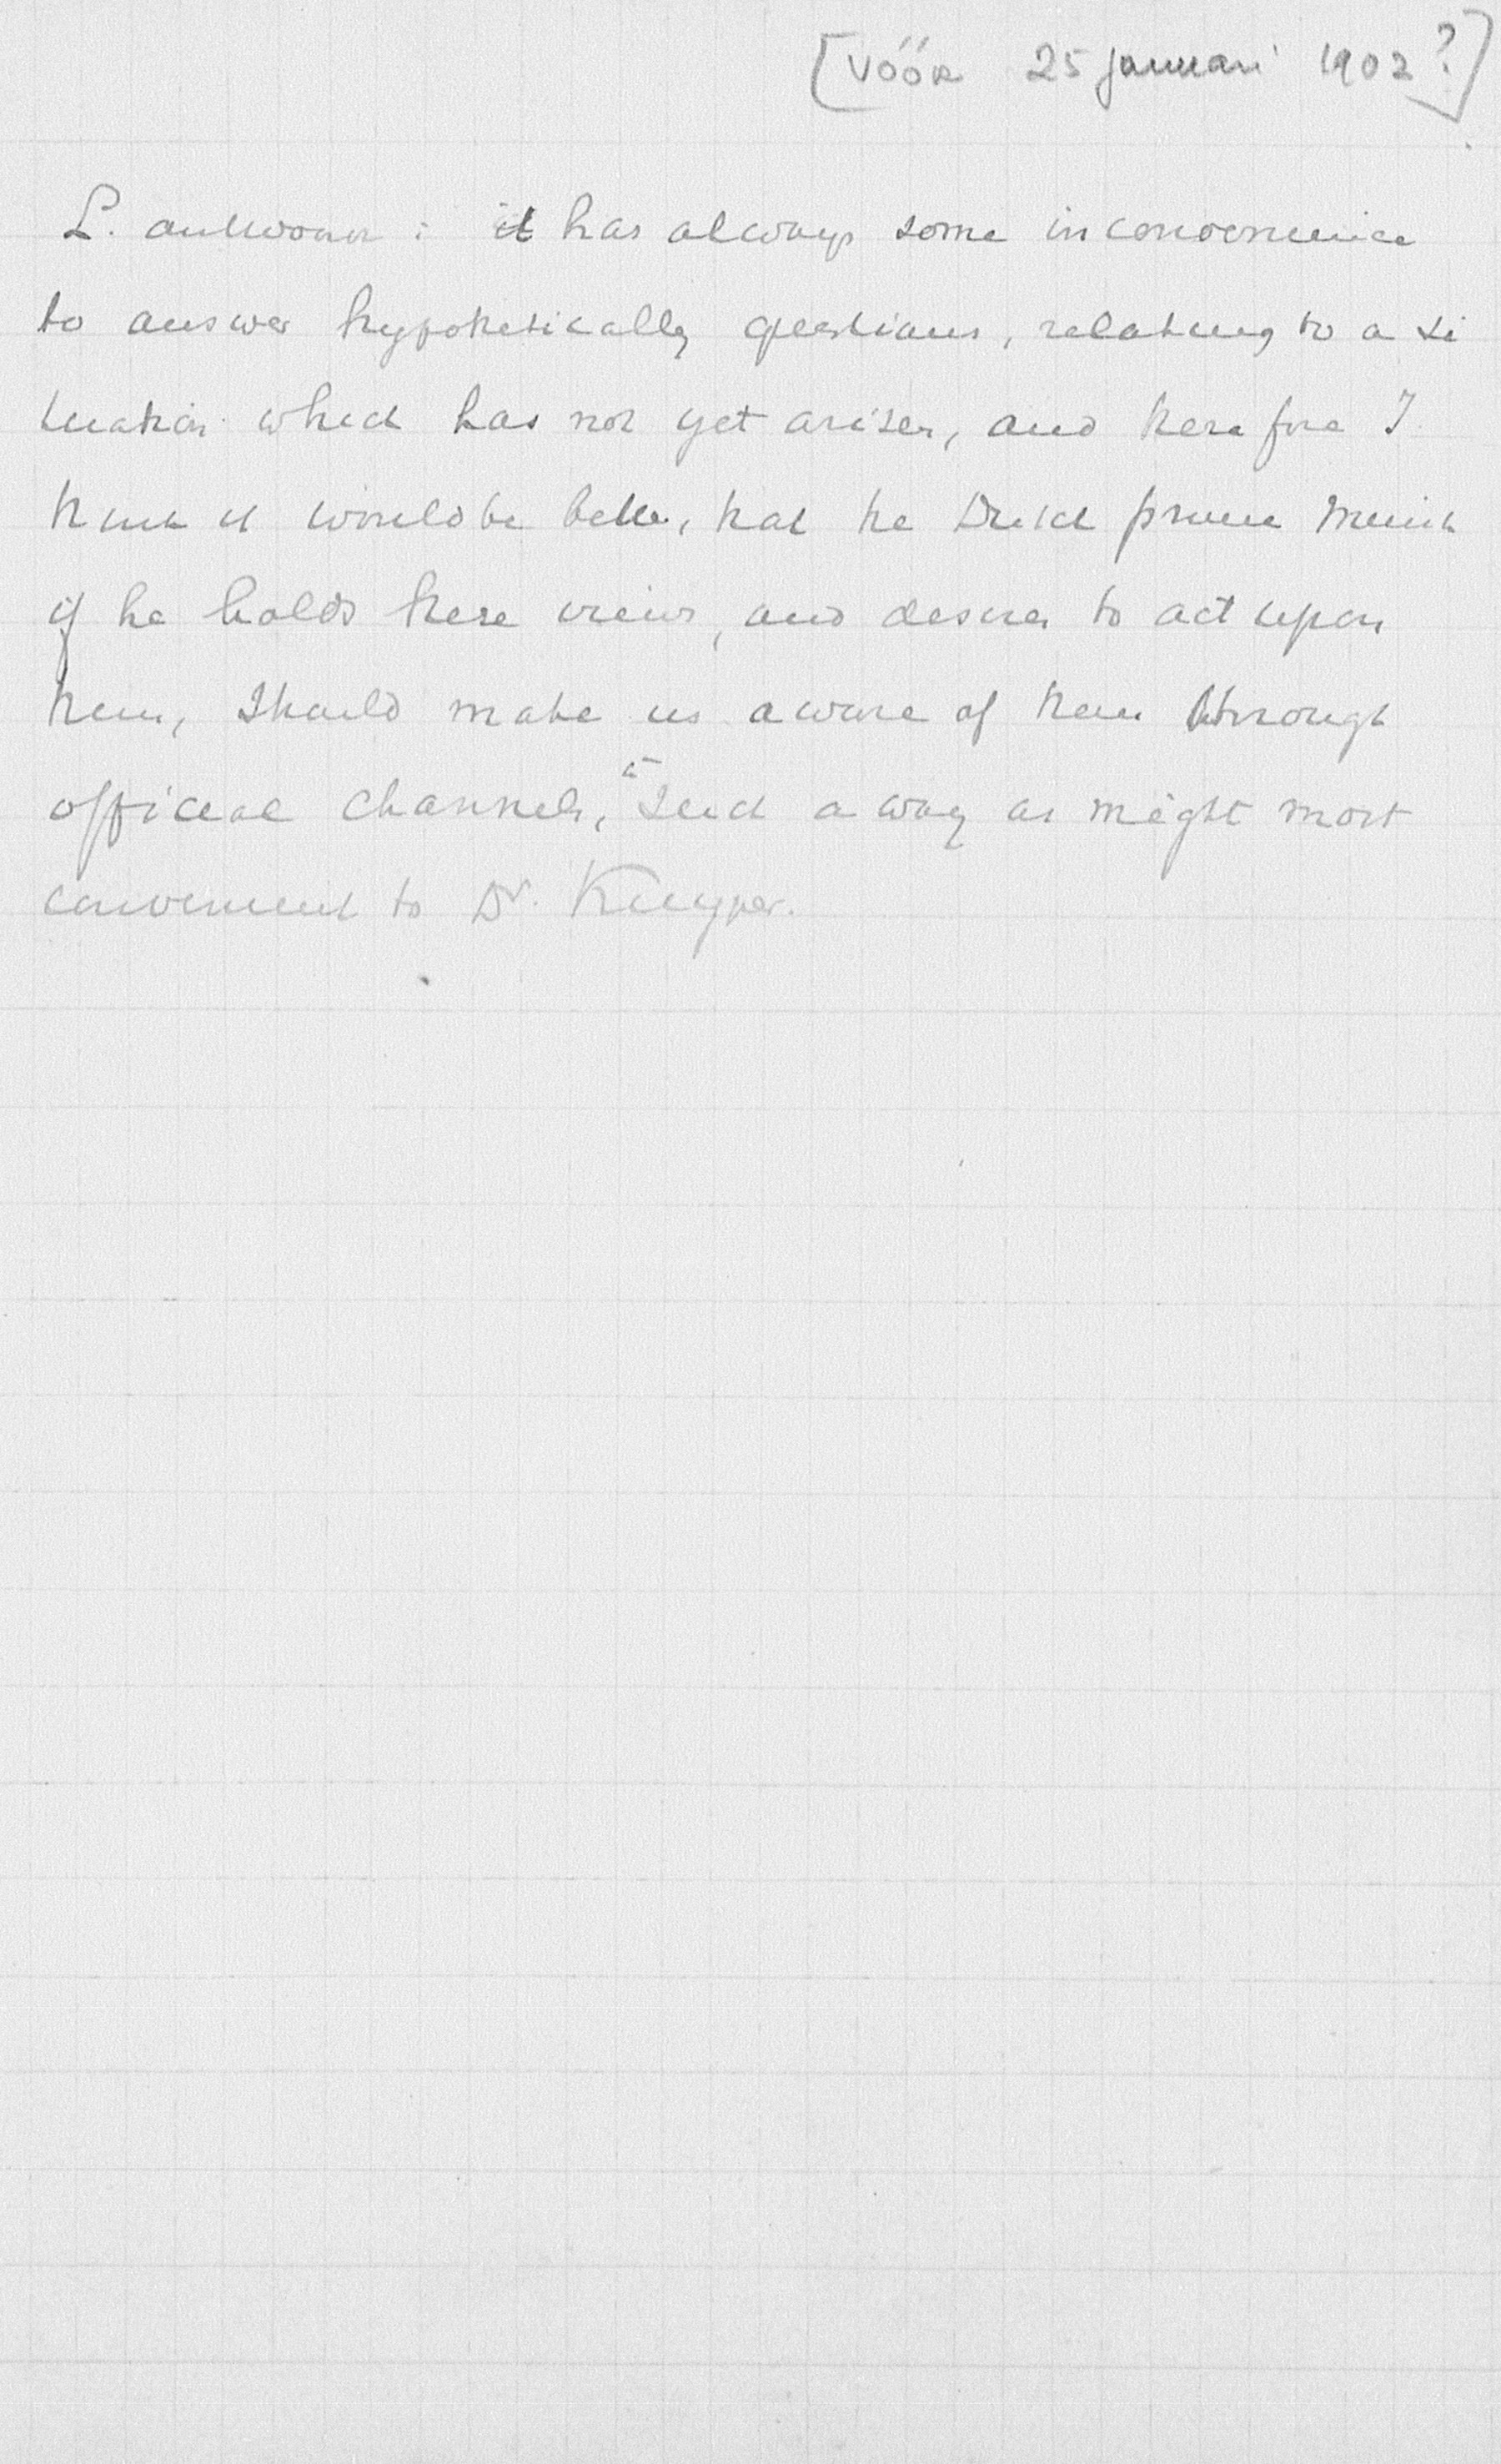 [vóór 25 januari 1902?]
L. antwoord: it has always some inconvenience
to answer hypothetically questions, relating to a si
tuation which has not yet arisen, and therefore I
think it would be better, that the Dutch prime minis
if he holds these views, and desires to act upon
them, should make us aware of them through
official channels, in such a way as might most
convenient to Dr. Kuyper.